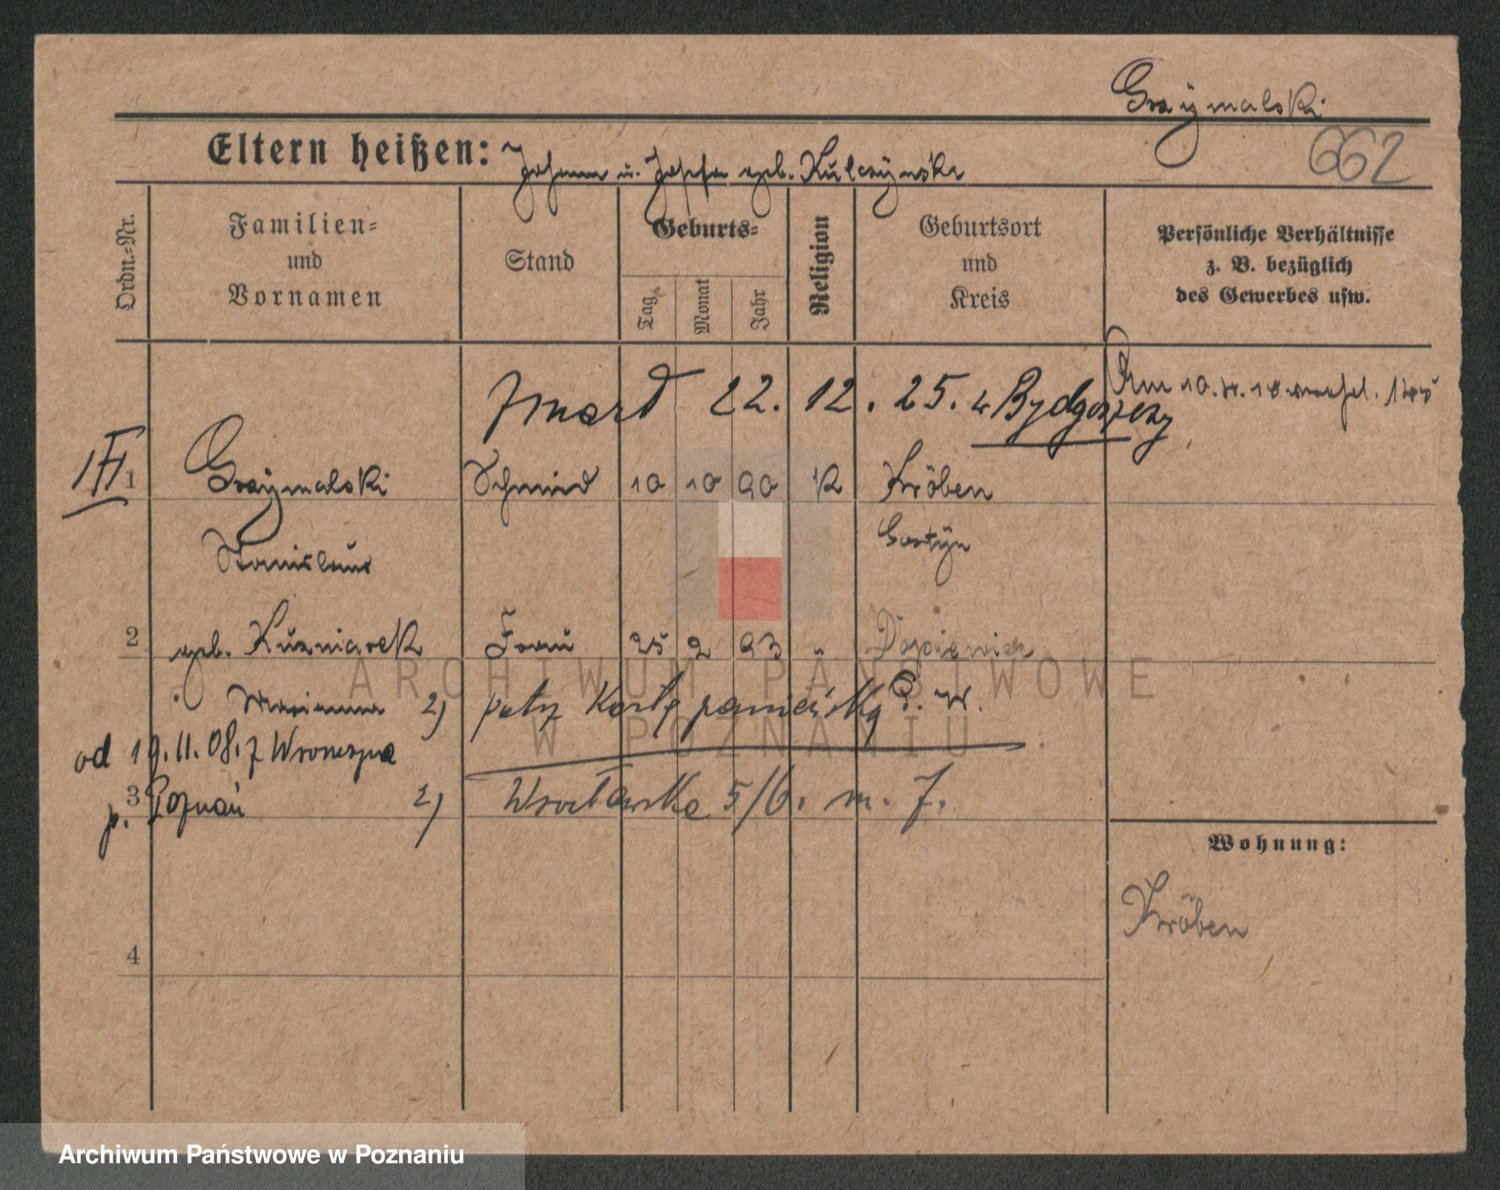 Grzymalski
662
Eltern heißen: Johann u. Josefa geb. Kulczynska
Ordn.-Nr.
Familien-
und
Vornamen
Stand
Geburts-
Tag
Monat
Jahr
Religion
Geburtsort
und
Kreis
Persönliche Verhältnisse
z. B. bezüglich
des Gewerbes usw.
Zmarł 22. 12. 25. w Bydgoszczy
1 Grzymalski Schmied 10 10 90 K Kröben
Stanislaus Gostyn
2 geb. Kuzniarek Frau 25 2 93 "
Marianna 2) patrz Kartę
od 19.11.08. z
3 p. Poznań 2) Wrocławska 5/6. m. 7.
Wohnung:
Kröben
4
ARCHIWUM PAŃSTWOWE
W POZNANIU
Archiwum Państwowe w Poznaniu